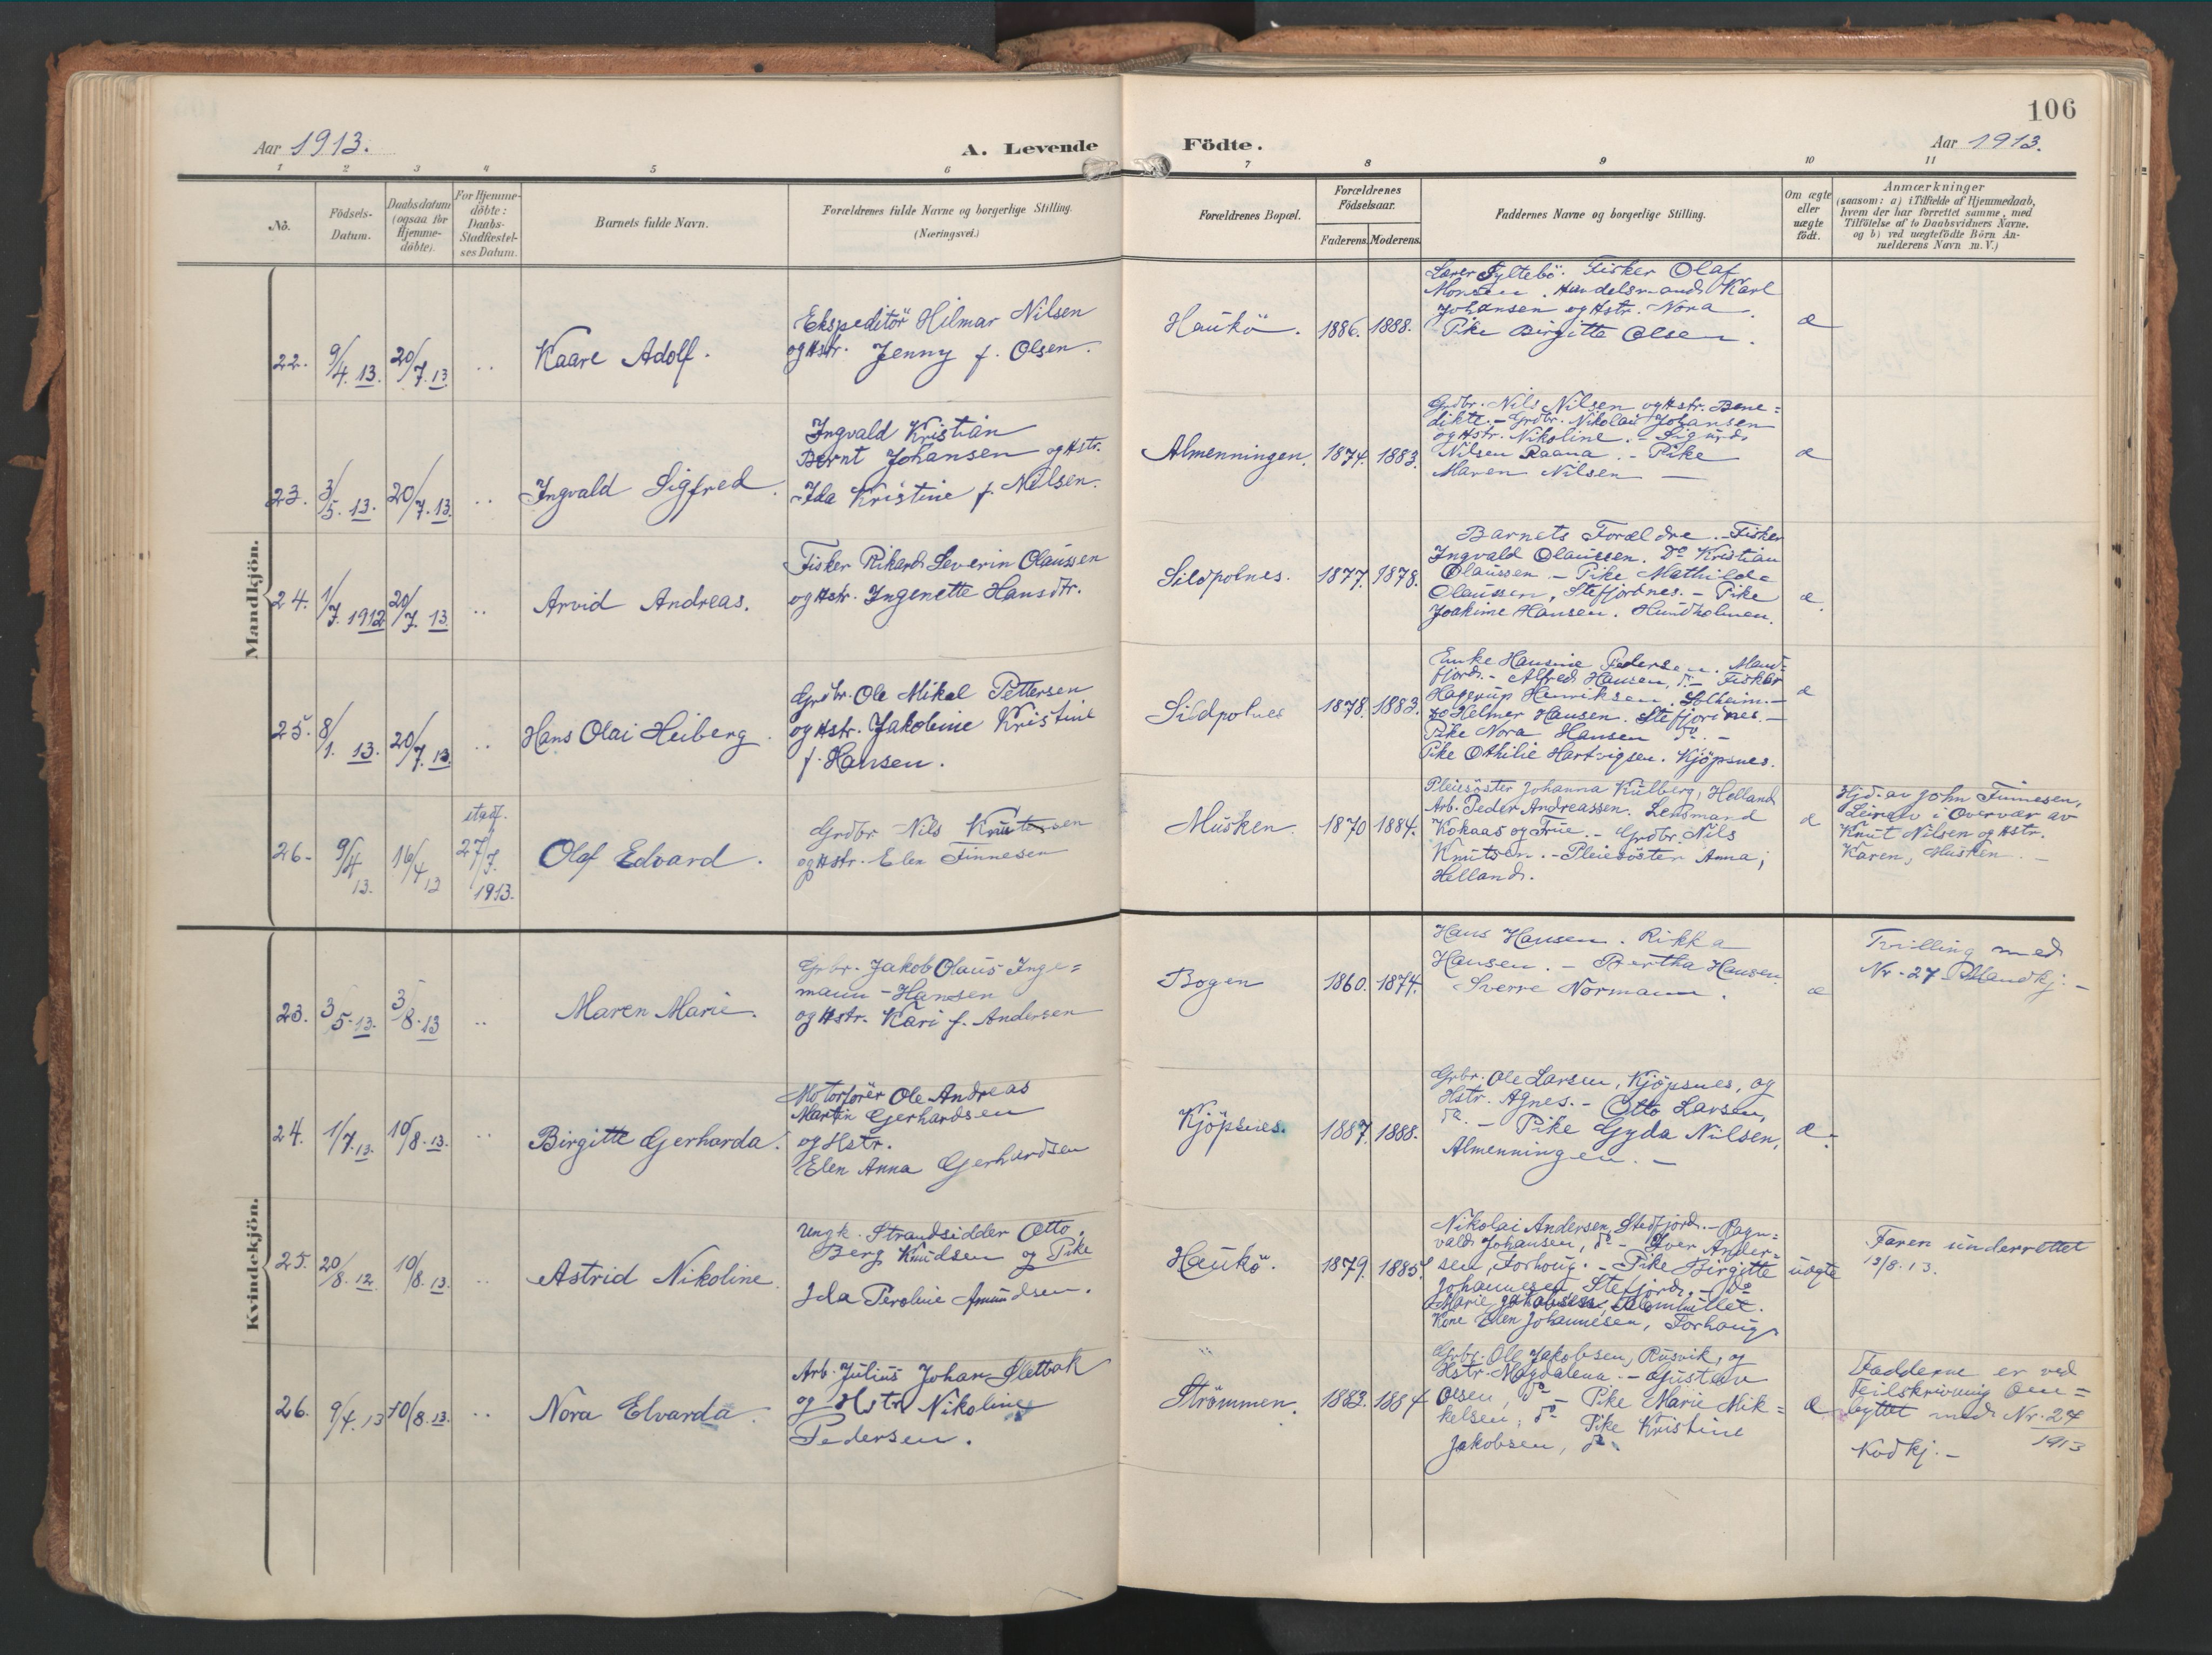 106
Aar 1913.
A. Levende
Födte.
Aar 1913.
1 2 3 4 5 6 7 8 9 10 11
No.
Födsels-
Datum.
Daabsdatum
(ogsaa for
Hjemme-
döbte).
For Hjemme-
döbte:
Daabs-
Stadfæstel-
ses Datum.
Barnets fulde Navn.
Forældrenes fulde Navne og borgerlige Stilling.
(Næringsvei.)
Forældrenes Bopæl.
Forældrenes
Födselsaar.
Faderens. Moderens.
Faddernes Navne og borgerlige Stilling.
Om ægte
eller
uægte
födt.
Anmærkninger
(saasom: a) i Tilfælde af Hjemmedaab,
hvem der har forrettet samme, med
Tilföielse af to Daabsvidners Navne,
og b) ved uægtefödte Börn An-
melderens Navn m. V.)
Mandkjön.
22.
9/4. 13.
20/7. 13
..
Kaare Adolf.
Ekspeditör Hilmar Nilsen
og Hstr. Jenny f. Olsen.
Haukö.
1886. 1888.
Lærer Syltebö. Fisker Olaf
Monsen. Handelsmand Karl
Johansen og Hstr. Nora.
Pike Birgitte Olsen.
æ
23.
3/5. 13.
20/7. 13.
..
Ingvald Sigfred.
Ingvald Kristian
Bernt Johansen og Hstr.
Ida Kristine f. Nilsen.
Almenningen.
1874. 1883.
Grdbr. Nils Nilsen og Hstr. Bene=
dikte. - Grdbr. Nikolai Johansen
og Hstr. Nikoline. - Sigurd
Nilsen Raana. - Pike
Maren Nilsen —
æ
24.
1/7. 1912
20/7. 13
..
Arvid Andreas.
Fisker Rikard Severin Olaussen
og Hstr. Ingenette Hansdtr.
Sildpolnes.
1877. 1878.
Barnets Forældre. - Fisker
Ingvald Olaussen. Do Kristian
Olaussen - Pike Mathilde
Olaussen, Stefjordnes. - Pike
Joakime Hansen. Hundholmen.
æ.
25.
8/1. 13.
20/7. 13.
..
Hans Olai Heiberg.
Grdbr. Ole Mikal Pettersen
og Hstr. Jakobine Kristine
f. Hansen.
Sildpolnes
1878. 1883.
Enke Hansine Pedersen. Mand=
fjord. - Alfred Hansen, do - Fisker
Hagerup Henriksen. Solheim. -
do Helmer Hansen. Stefjordnes. -
Pike Nora Hansen do. -
Pike Othilie Hartvigsen. Kjöpsnes.
æ
26.
9/4 13.
16/4 13
stadf.
27/7.
1913.
Olaf Edvard.
Grdbr Nils Knutsen
og Hstr. Elen Finnesen
Musken.
1870 1884.
Pleiesöster Johanna Kulberg, Helland
Arb. Peder Andreassen. Lensmand
Kokaas og Frue. - Grdbr. Nils
Knutsen. - Pleiesöster Anna,
Helland.
æ
Hjd. av John Finnesen,
i Overvær av
Knut Nilsen og Hstr.
Karen, Musken. —
Kvindekjön.
23.
3/5. 13.
3/8. 13
..
Maren Marie.
Grbr. Jakob Olaus Inge=
mann - Hansen
og Hstr. Kari f. Andersen
Bogen
1860. 1874.
Hans Hansen. Rikka
Hansen. - Bertha Hansen.
Sverre Normann.
æ
Tvilling med
Nr. 27 Mandkj. -
24.
1/7. 13.
10/8. 13.
..
Birgitte Gerharda.
Motorförer Ole Andreas
Martin Gerhardsen
og Hstr.
Elen Anna Gerhardsen
Kjöpsnes.
1887. 1888.
Grbr. Ole Larsen, Kjöpsnes, og
Hstr. Agnes. - Otto Larsen,
do. - Pike Gyda Nilsen,
Almenningen. —
æ.
25.
20/8. 12.
10/8. 13.
..
Astrid Nikoline.
Ungk. Strandsidder Otto
Berg Knudsen og Pike
Ida Peroline Amundsen.
Haukö.
1879. 1885.
Nikolai Andersen, Stefjord. - Ragn=
vald Johansen, do - Iver Ander=
sen, Forhaug. - Pike Birgitte
Johannesen Stefjord, - Do
Marie
Kone Elen Johannesen, Forhaug
uægte
Faren underrettet
13/8. 13.
26.
9/4. 13
10/8. 13.
..
Nora Elvarda.
Arb. Julius Johan Sletbak
og Hstr Nikoline
Pedersen.
Strömmen.
1883. 1884
Grbr. Ole Jakobsen, Rusvik, og
Hstr. Magdalena. - Gustav
Olsen, do - Pike Marie Mik=
kelsen, do Pike Kristine
Jakobsen, do.
æ
Fadderne er ved
Feilskrivning om=
byttet med Nr. 24
1913
Kvdkj. -